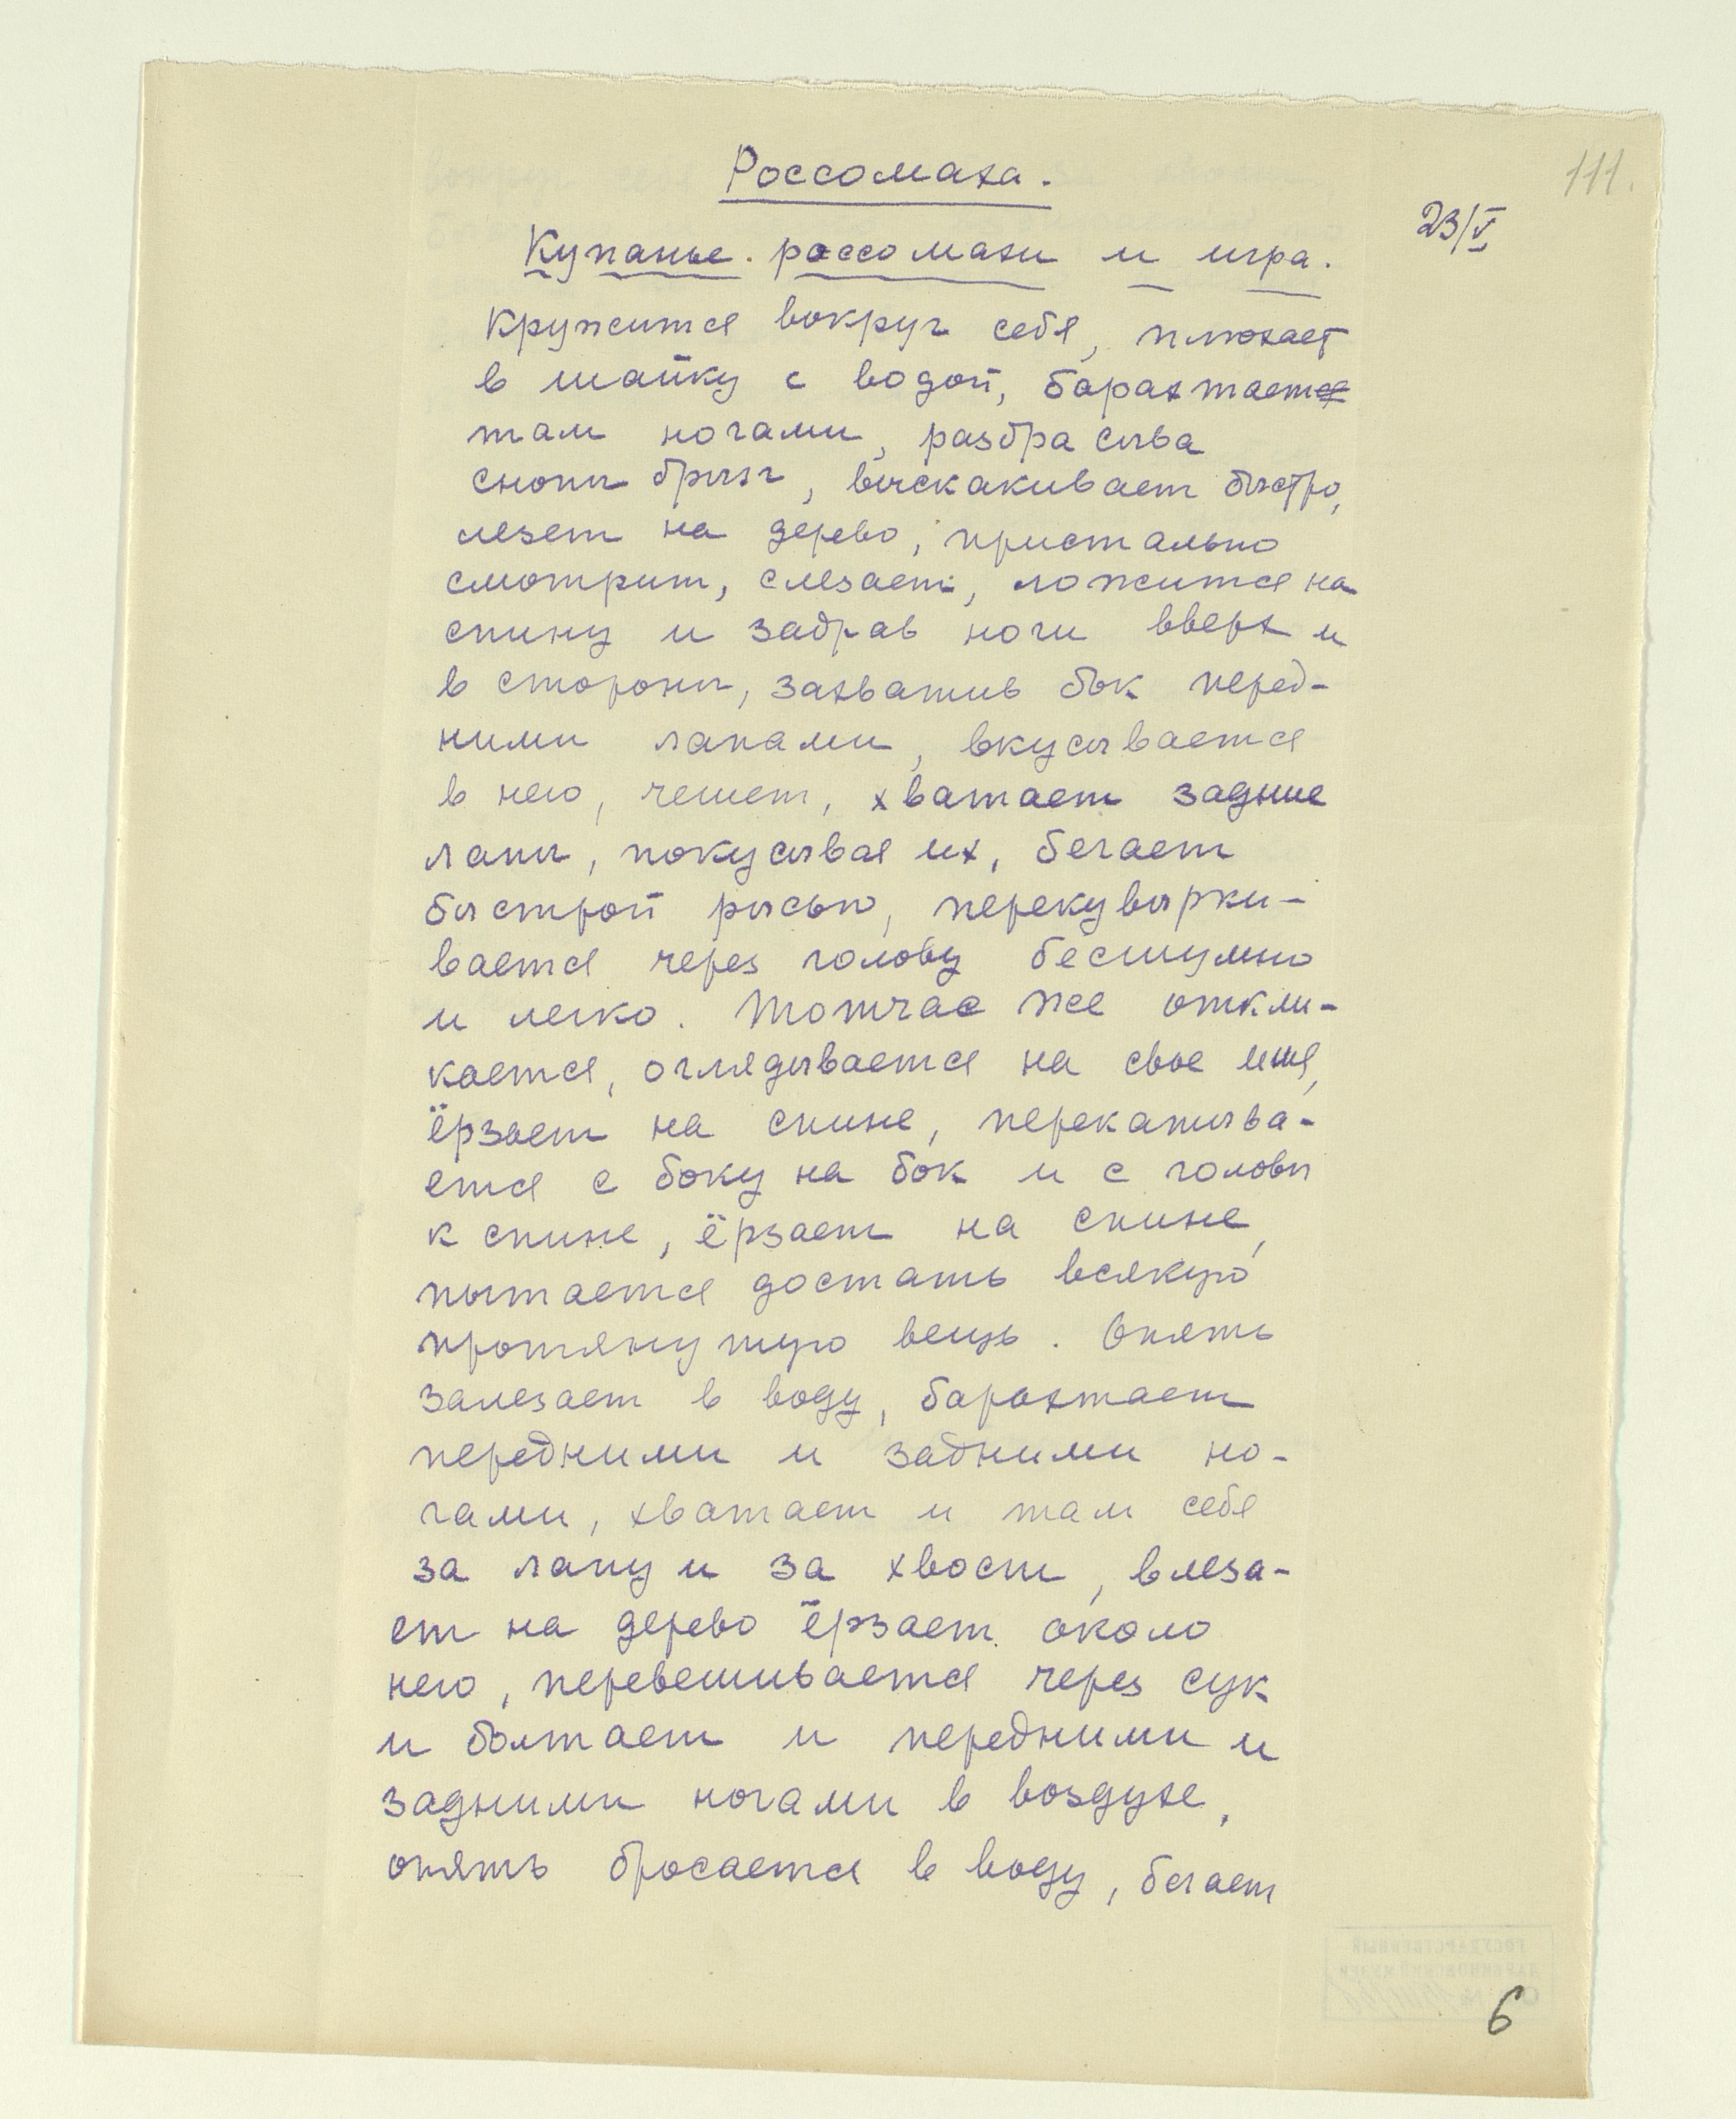 111.
Россомаха.
23/V
Купанье россомахи и игра.
Кружится вокруг себя, плюхает
в шайку с водой, барахтает
там ногами, разбрасыва
снопы брызг, выскакивает быстро,
лезет на дерево, пристально
смотрит, слезает, ложится на
спину и задрав ноги вверх и
в стороны, захватив бок перед-
ними лапами, вкусывается
в него, чешет, хватает задние
лапы, покусывая их, бегает
быстрой рысью, перекувырки-
вается через голову бесшумно
и легко. Тотчас же откли-
кается, оглядывается на свое имя,
ёрзает на спине, перекатыва-
ется с боку на бок и с головы
к спине, ёрзает на спине,
пытается достать всякую
протянутую вещь. Опять
залезает в воду, барахтает
передними и задними но-
гами, хватает и там себя
за лапу и за хвост, влеза-
ет на дерево ёрзает около
него, перевешивается через сук
и болтает и передними и
задними ногами в воздухе,
опять бросается в воду, бегает
6